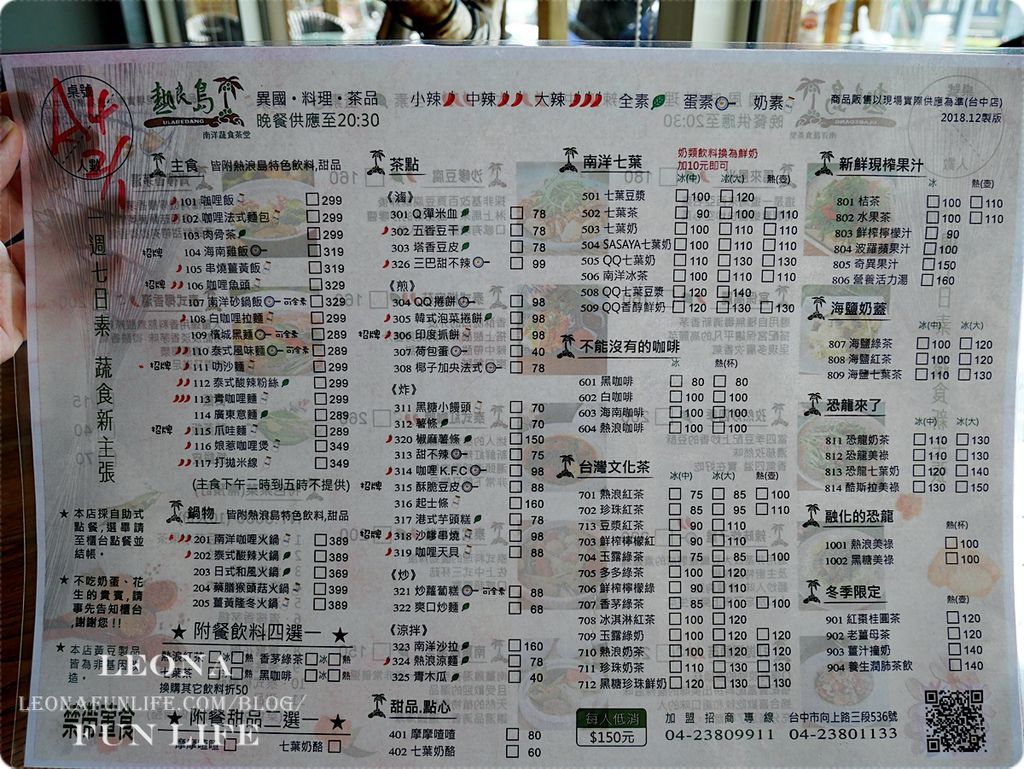 桌號
A4
人數
熱浪島
ULABEDANG
南洋蔬食茶堂
異國・料理・茶品
晚餐供應至20:30
小辣 中辣 大辣 全素 蛋素 奶素
商品販售以現場實際供應為準(台中店)
2018.12製版
一週七日素 蔬食新主張
主食 皆附熱浪島特色飲料,甜品
101 咖哩飯 299
102 咖哩法式麵包 299
103 肉骨茶 299
招牌 104 海南雞飯 319
105 串燒薑黃飯 319
招牌 106 咖哩魚頭 329
107 南洋砂鍋飯 可全素 329
108 白咖哩拉麵 299
109 檳城黑麵 可全素 289
招牌 110 泰式風味麵 可全素 289
招牌 111 叻沙麵 299
112 泰式酸辣粉絲 299
113 青咖哩麵 299
114 廣東意麵 289
招牌 115 爪哇麵 289
116 娘惹咖哩煲 349
117 打拋米線 349
(主食下午二時到五時不提供)
鍋物 皆附熱浪島特色飲料,甜品
201 南洋咖哩火鍋 389
202 泰式酸辣火鍋 369
203 日式和風火鍋 369
204 藥膳猴頭菇火鍋 399
205 薑黃隆冬火鍋 389
★ 附餐飲料四選一 ★
熱浪紅茶 冰 熱 香茅綠茶 冰 熱
七葉茶 冰 熱 黑咖啡 冰 熱
換購其它飲料折50
★ 附餐甜品二選一 ★
摩摩喳喳 七葉奶酪
★ 本店採自助式點餐,選單請至櫃台點餐並結帳。
★ 不吃奶蛋、花生的貴賓,請事先告知櫃台,謝謝您!!
★ 本店黃豆製品皆為非基因改造。
茶點
《滷》
301 Q彈米血 78
302 五香豆干 78
303 塔香豆皮 78
326 三巴甜不辣 99
《煎》
304 QQ捲餅 98
305 韓式泡菜捲餅 98
招牌 306 印度抓餅 98
307 荷包蛋 40
308 椰子加央法式 78
《炸》
311 黑糖小饅頭 70
312 薯條 70
320 椒麻薯條 150
313 甜不辣 75
314 咖哩K.F.C 98
招牌 315 酥脆豆皮 88
316 起士條 160
317 港式芋頭糕 88
招牌 318 沙嗲串燒 98
319 咖哩天貝 88
《炒》
321 炒蘿蔔糕 可全素 88
322 爽口炒麵 68
《涼拌》
323 南洋沙拉 160
324 熱浪涼麵 78
325 青木瓜 40
甜品,點心
401 摩摩喳喳 80
402 七葉奶酪 60
南洋七葉
奶類飲料換為鮮奶
加10元即可
冰(中) 冰(大) 熱(壺)
501 七葉豆漿 100 120
502 七葉茶 90 100 110
503 七葉奶 100 110 110
504 SASAYA七葉奶 100 110 110
505 QQ七葉奶 110 130 130
506 南洋冰茶 100 110 110
508 QQ七葉豆漿 120 140
509 QQ香醇鮮奶 120 130 130
不能沒有的咖啡
冰 熱(杯)
601 黑咖啡 80 80
602 白咖啡 100 100
603 海南咖啡 100 100
604 熱浪咖啡 100 100
台灣文化茶
冰(中) 冰(大) 熱(壺)
701 熱浪紅茶 75 85 100
702 珍珠紅茶 85 95
713 豆漿紅茶 90 110
703 鮮榨檸檬紅 90 110
704 玉露綠茶 75 85 100
705 多多綠茶 100 120
706 鮮榨檸檬綠 90 110
707 香茅綠茶 85 100 100
708 冰淇淋紅茶 100
709 玉露綠奶 100 120 120
710 熱浪奶茶 100 120 120
711 珍珠奶茶 110 130 130
712 黑糖珍珠鮮奶 120 130 130
每人低消
$150元
加盟招商專線 台中市向上路三段536號
04-23809911 04-23801133
新鮮現榨果汁
冰 熱(壺)
801 桔茶 100 110
802 水果茶 100 110
803 鮮榨檸檬汁 90
804 波羅蘋果汁 100
805 奇異果汁 150
806 營養活力湯 160
海鹽奶蓋
冰(中) 冰(大)
807 海鹽綠茶 100 120
808 海鹽紅茶 100 120
809 海鹽七葉茶 110 130
恐龍來了
冰(中) 冰(大)
811 恐龍奶茶 110 130
812 恐龍美祿 110 130
813 恐龍七葉奶 120 140
814 酷斯拉美祿 130 150
融化的恐龍
熱(杯)
1001 熱浪美祿 100
1002 黑糖美祿 100
冬季限定
熱(壺)
901 紅棗桂圓茶 120
902 老薑母茶 120
903 薑汁撞奶 140
904 養生潤肺茶飲 140
LEONA
LEONAFUNLIFE.COM/BLOG/
FUN LIFE